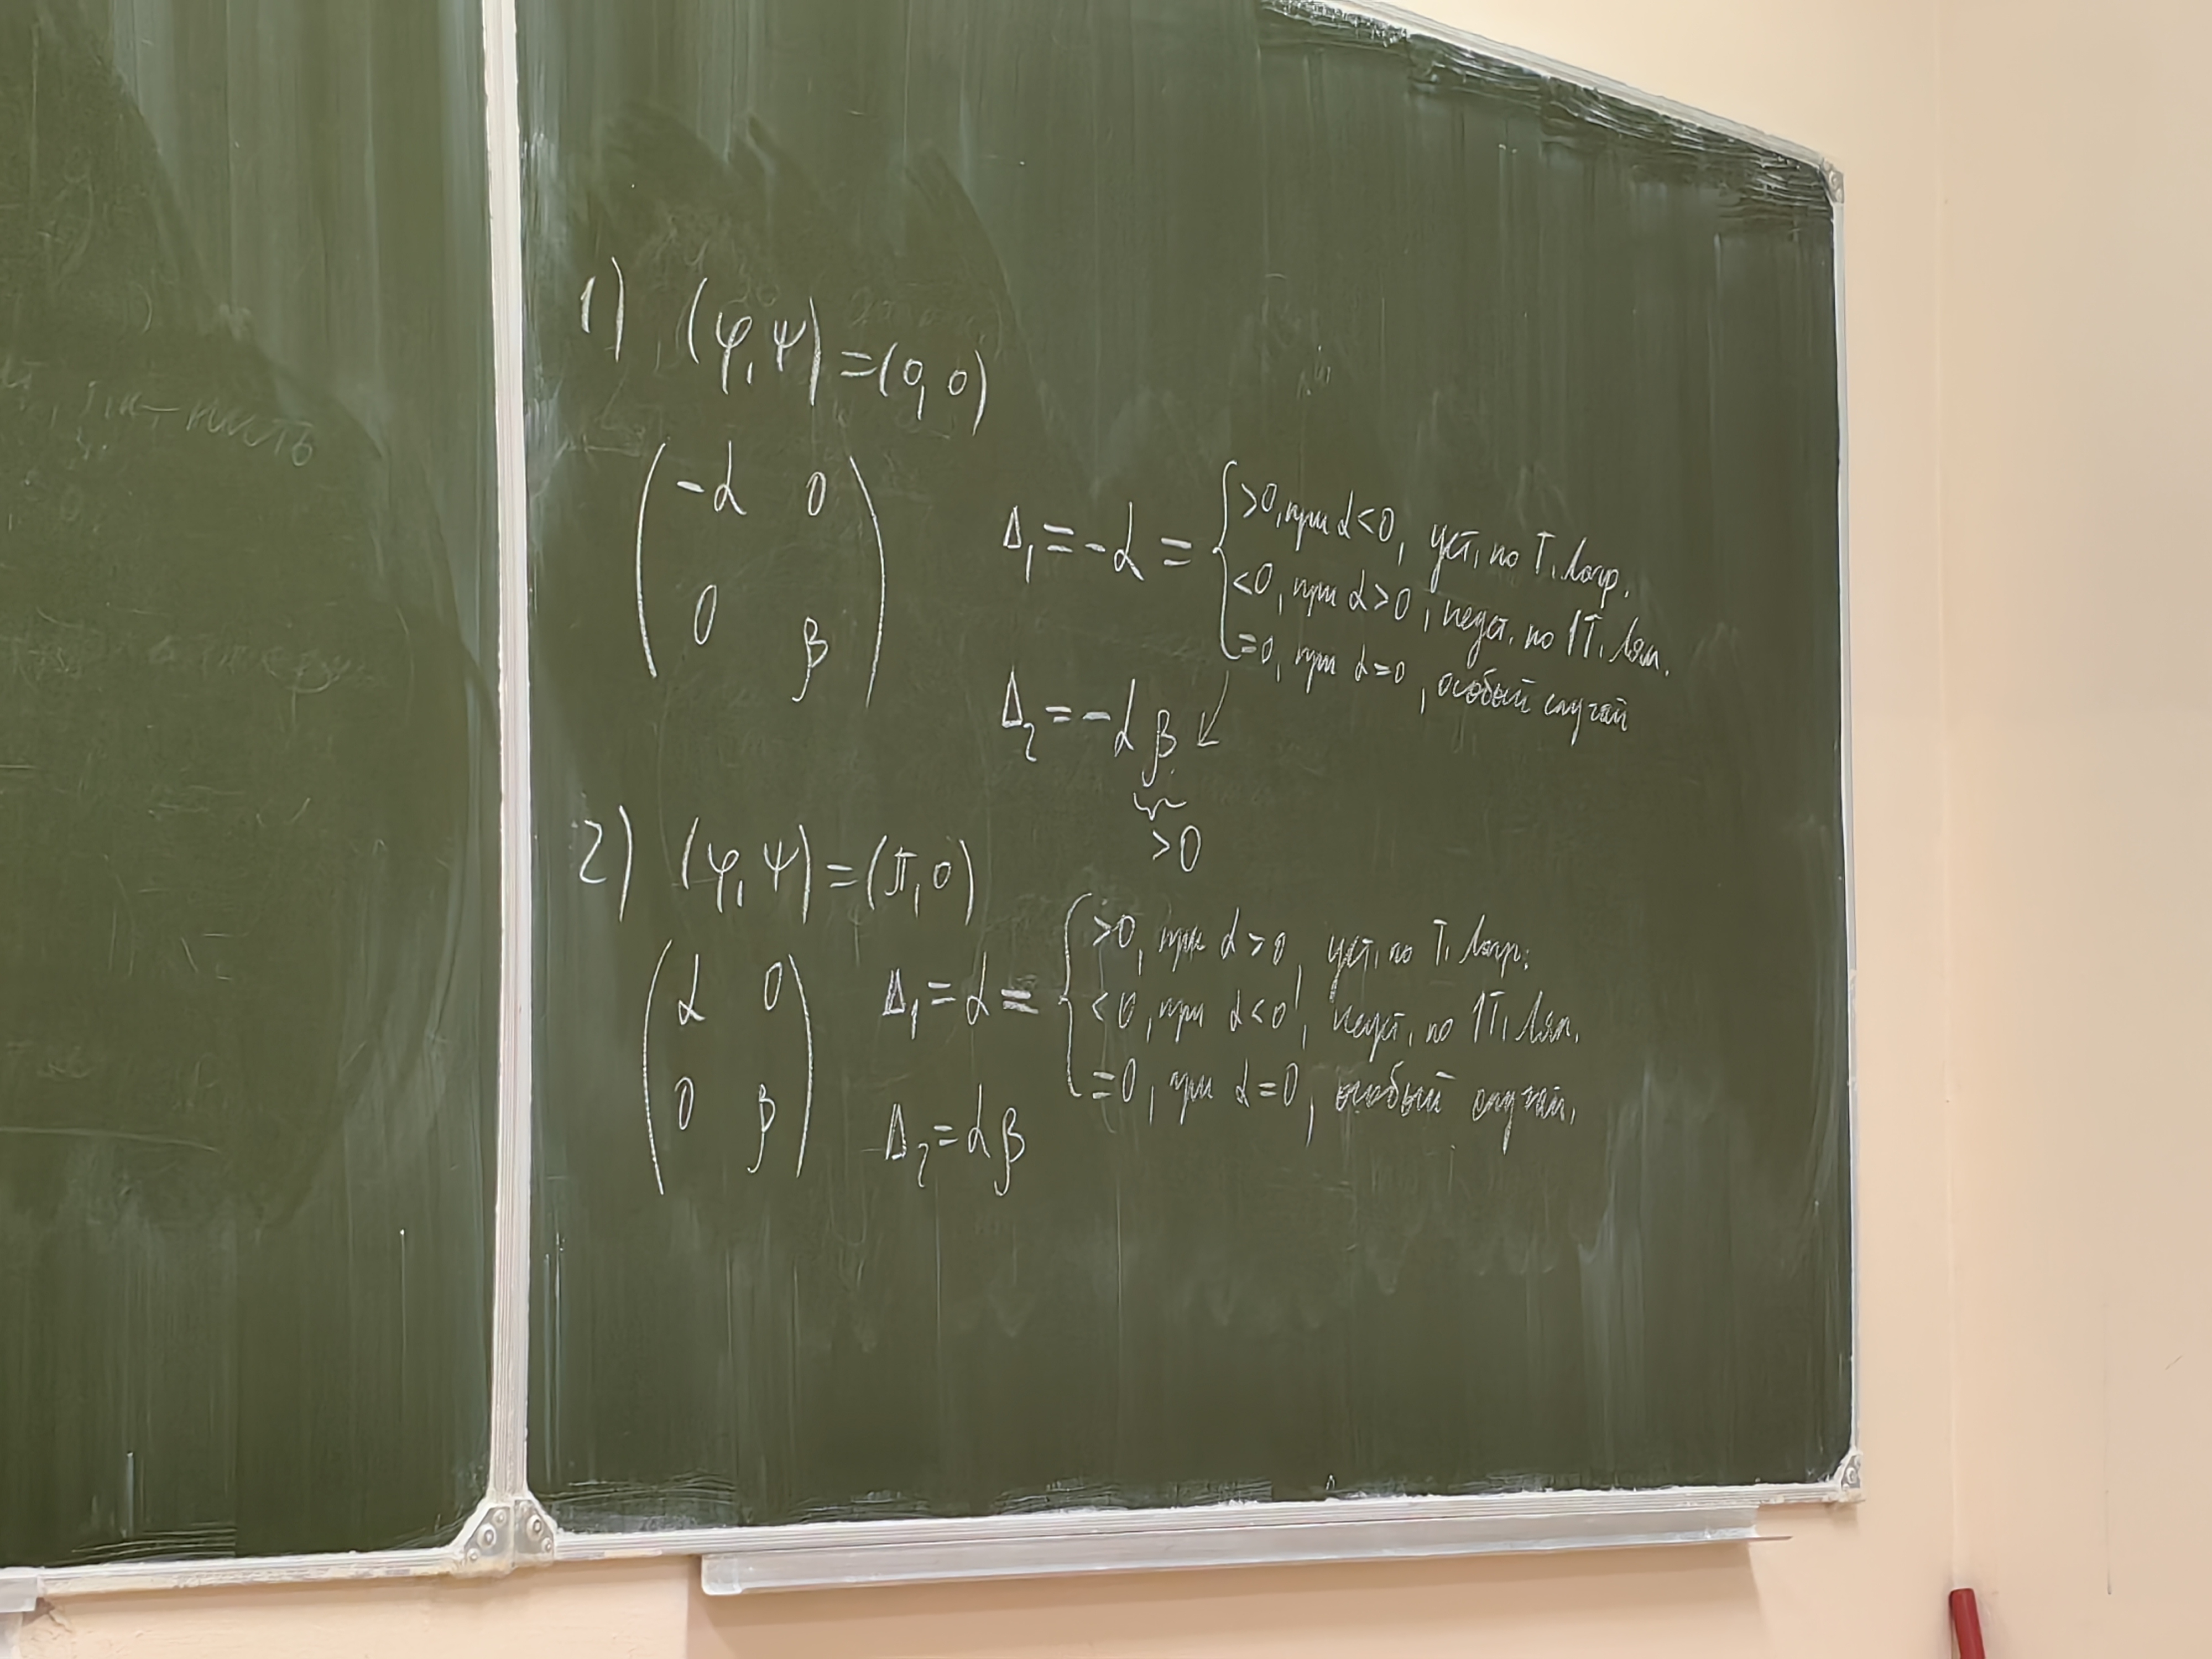 1) (φ, ψ) = (0, 0)
(-α 0
0 β)
Δ₁ = -α = { >0, при α<0, уст. по Т. Лагр.
<0, при α>0, неуст. по 1Т. Ляп.
=0, при α=0, особый случай
Δ₂ = -αβ ↙
>0
2) (φ, ψ) = (π, 0)
(α 0
0 β)
Δ₁ = α = { >0, при α>0, уст. по Т. Лагр.
<0, при α<0, неуст. по 1Т. Ляп.
=0, при α=0, особый случай.
Δ₂ = αβ